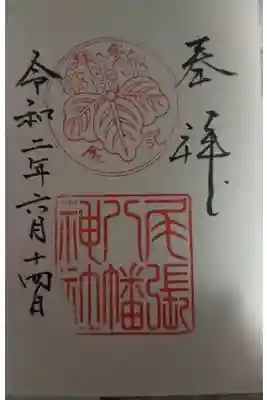 奉拝
尾張
八幡
神社
令和二年六月十四日